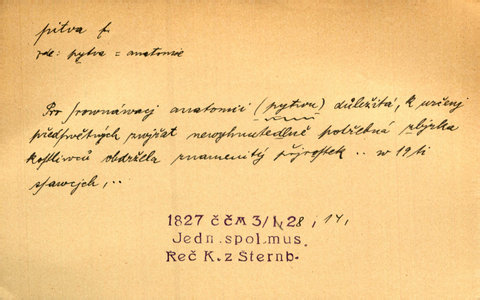 pitva f.
zde: pytva = anatomie
Pro srownáwacj anatomii (pytwu) důležitá, k určenj
předswětných zwjřat newyhnutedlně potřebná zbjrka
kostliwců obdržela znamenitý přjrostek .. w 19ti
stawcjch, ..
1827 ČČM 3/1, 28, 14,
Jedn. spol. mus.
Řeč K. z Sternb.